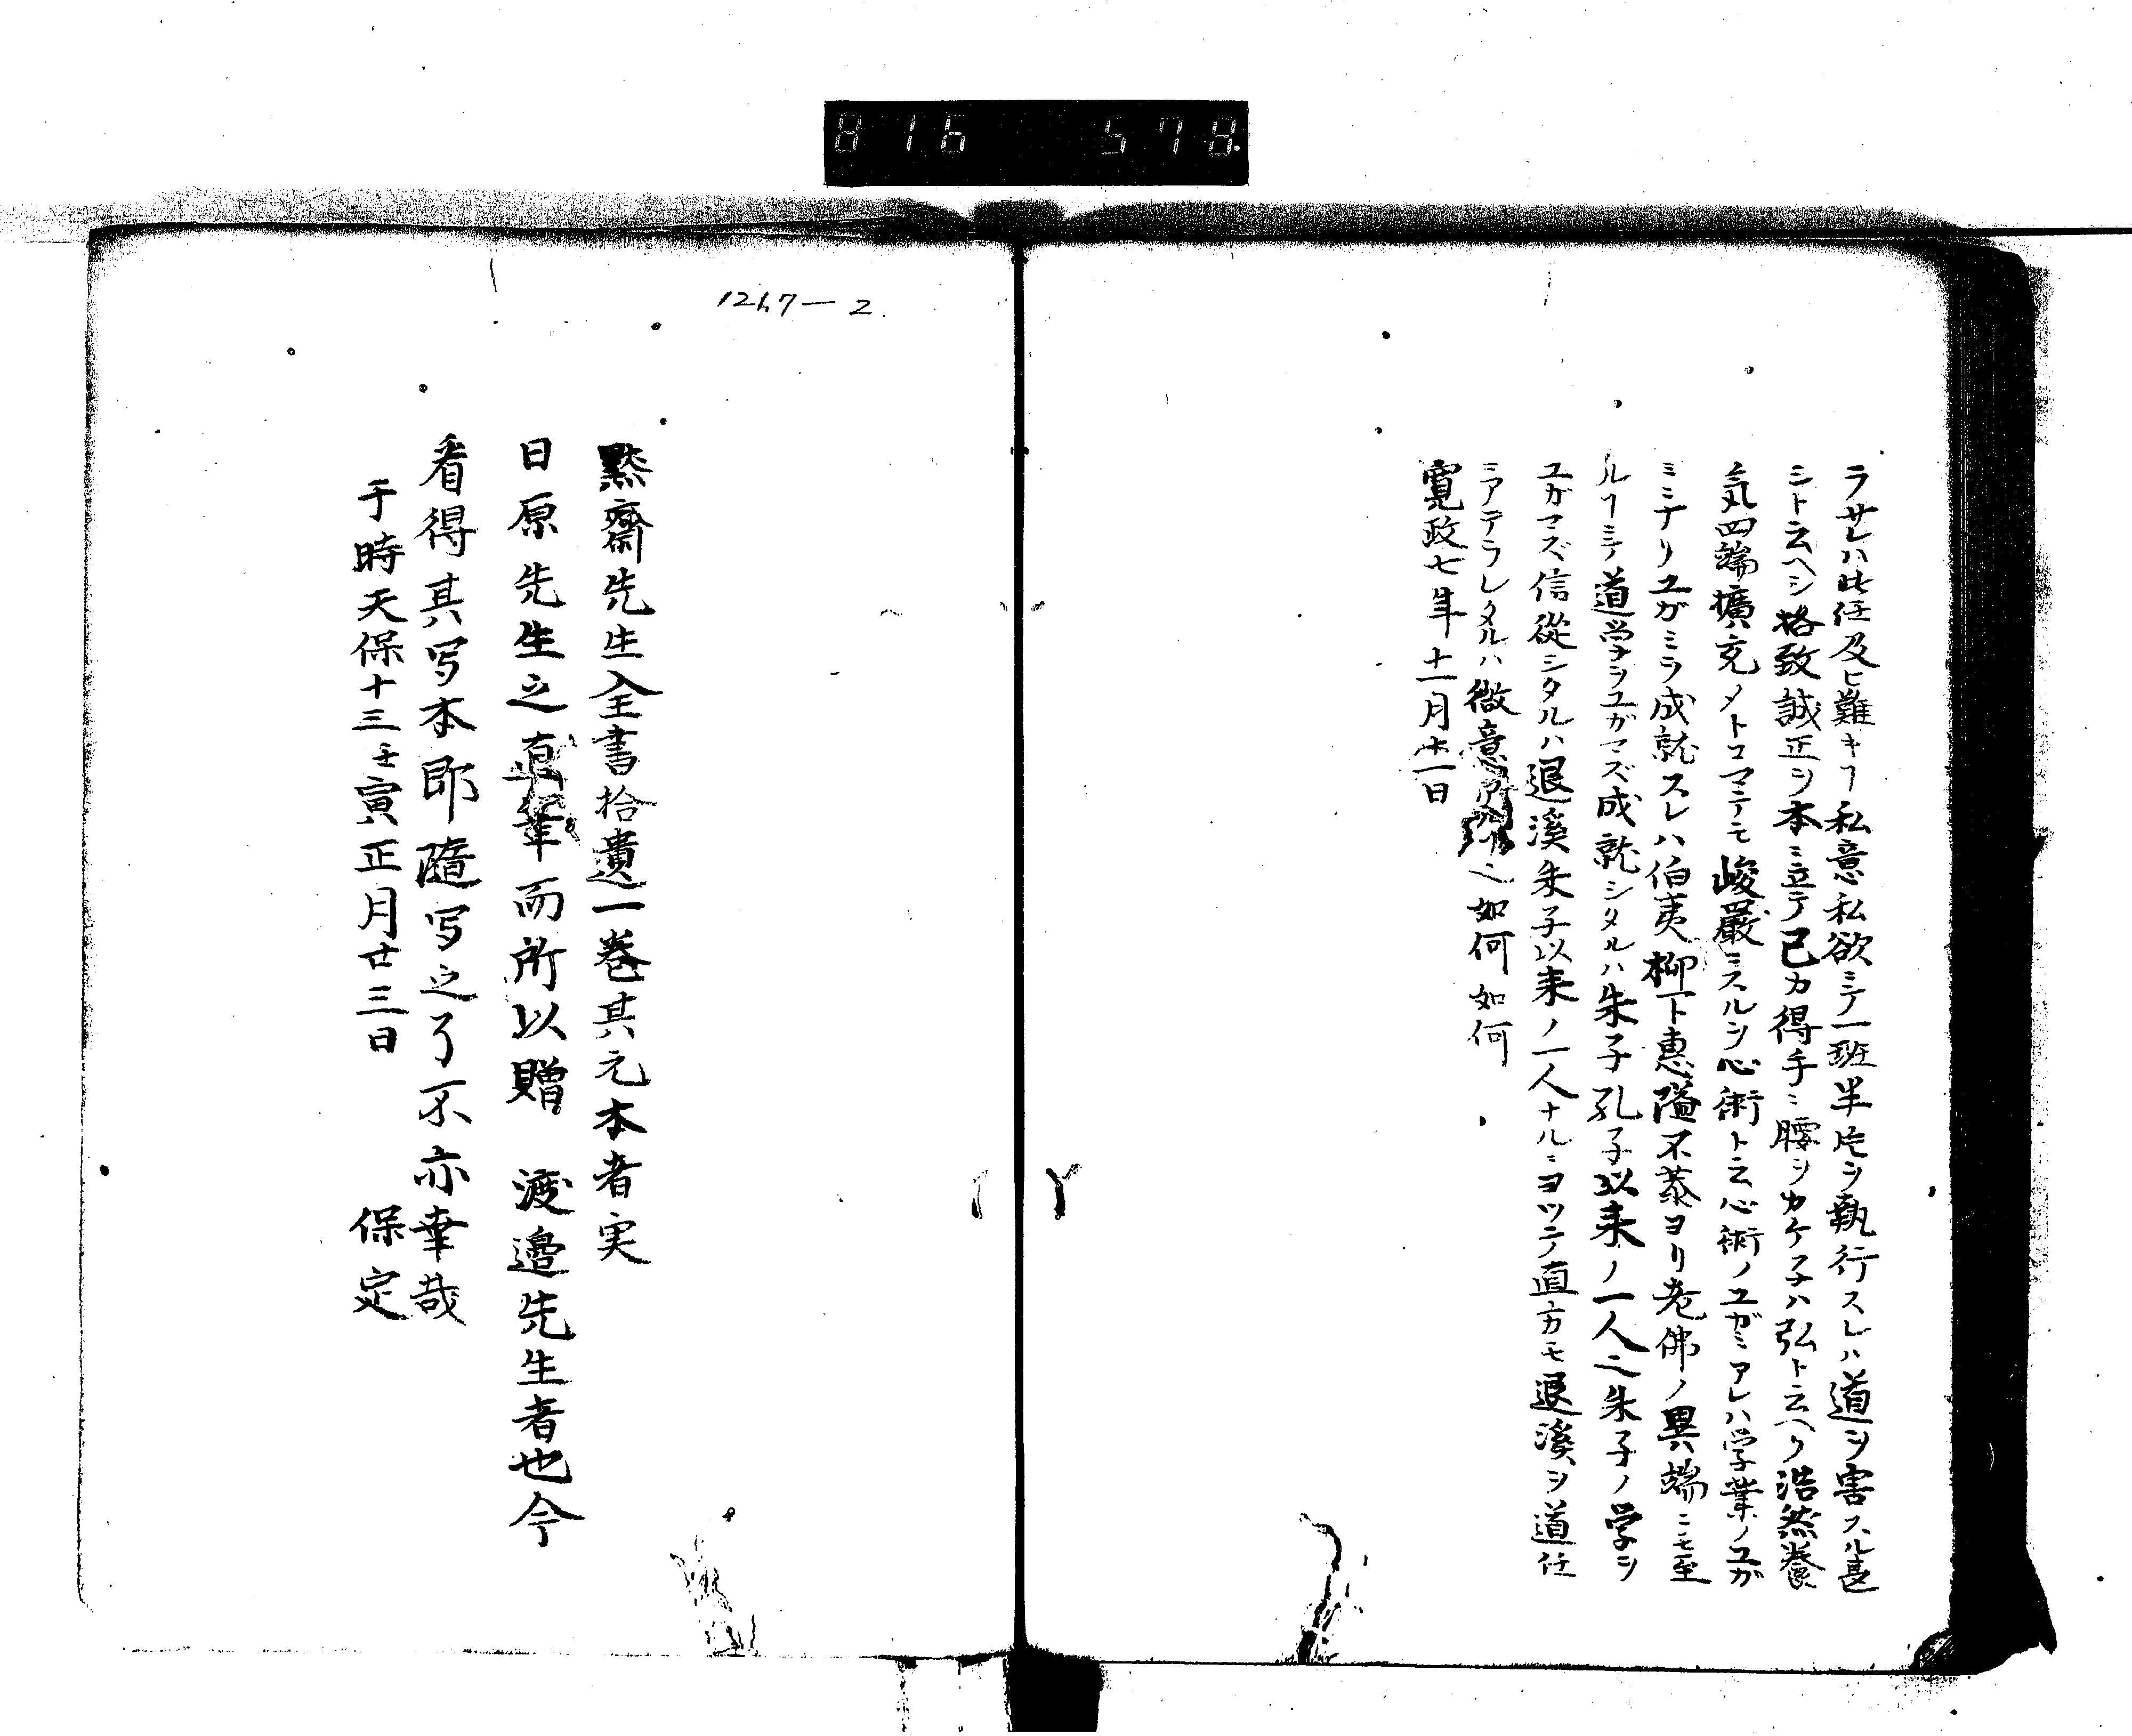 816 578.
ラサレハ此任及ヒ難キヿ私意私欲ミテ一班半片ヲ執行スレハ道ヲ害スル甚
シト云ヘシ格致誠正ヲ本ミ立テ己カ得手ミ腰ヲカケ子ハ弘ト云ヘク浩然養
気四端擴充ノトコマテモ峻嚴ミスルヲ心術ト云心術ノユガミアレハ学業ノユガ
ミミナリユガミヲ成就スレハ伯夷柳下惠隘不恭ヨリ老佛ノ異端ニモ至
ルヿミテ道学ナラユガマズ成就シタルハ朱子孔子以来ノ一人ニ朱子ノ学ヲ
ユガマズ信從シタルハ退溪朱子以来ノ一人ナルミヨツテ直方モ退溪ヲ道任
ミアテラレタルハ微意 如何如何
寛政七年十一月十一日
1247-2
黙齋先生全書拾遺一巻其元本者実
日原先生之直筆而所以贈 渡邉先生者也今
看得其写本即隨写之了不亦幸哉
于時天保十三壬寅正月廿三日 保定